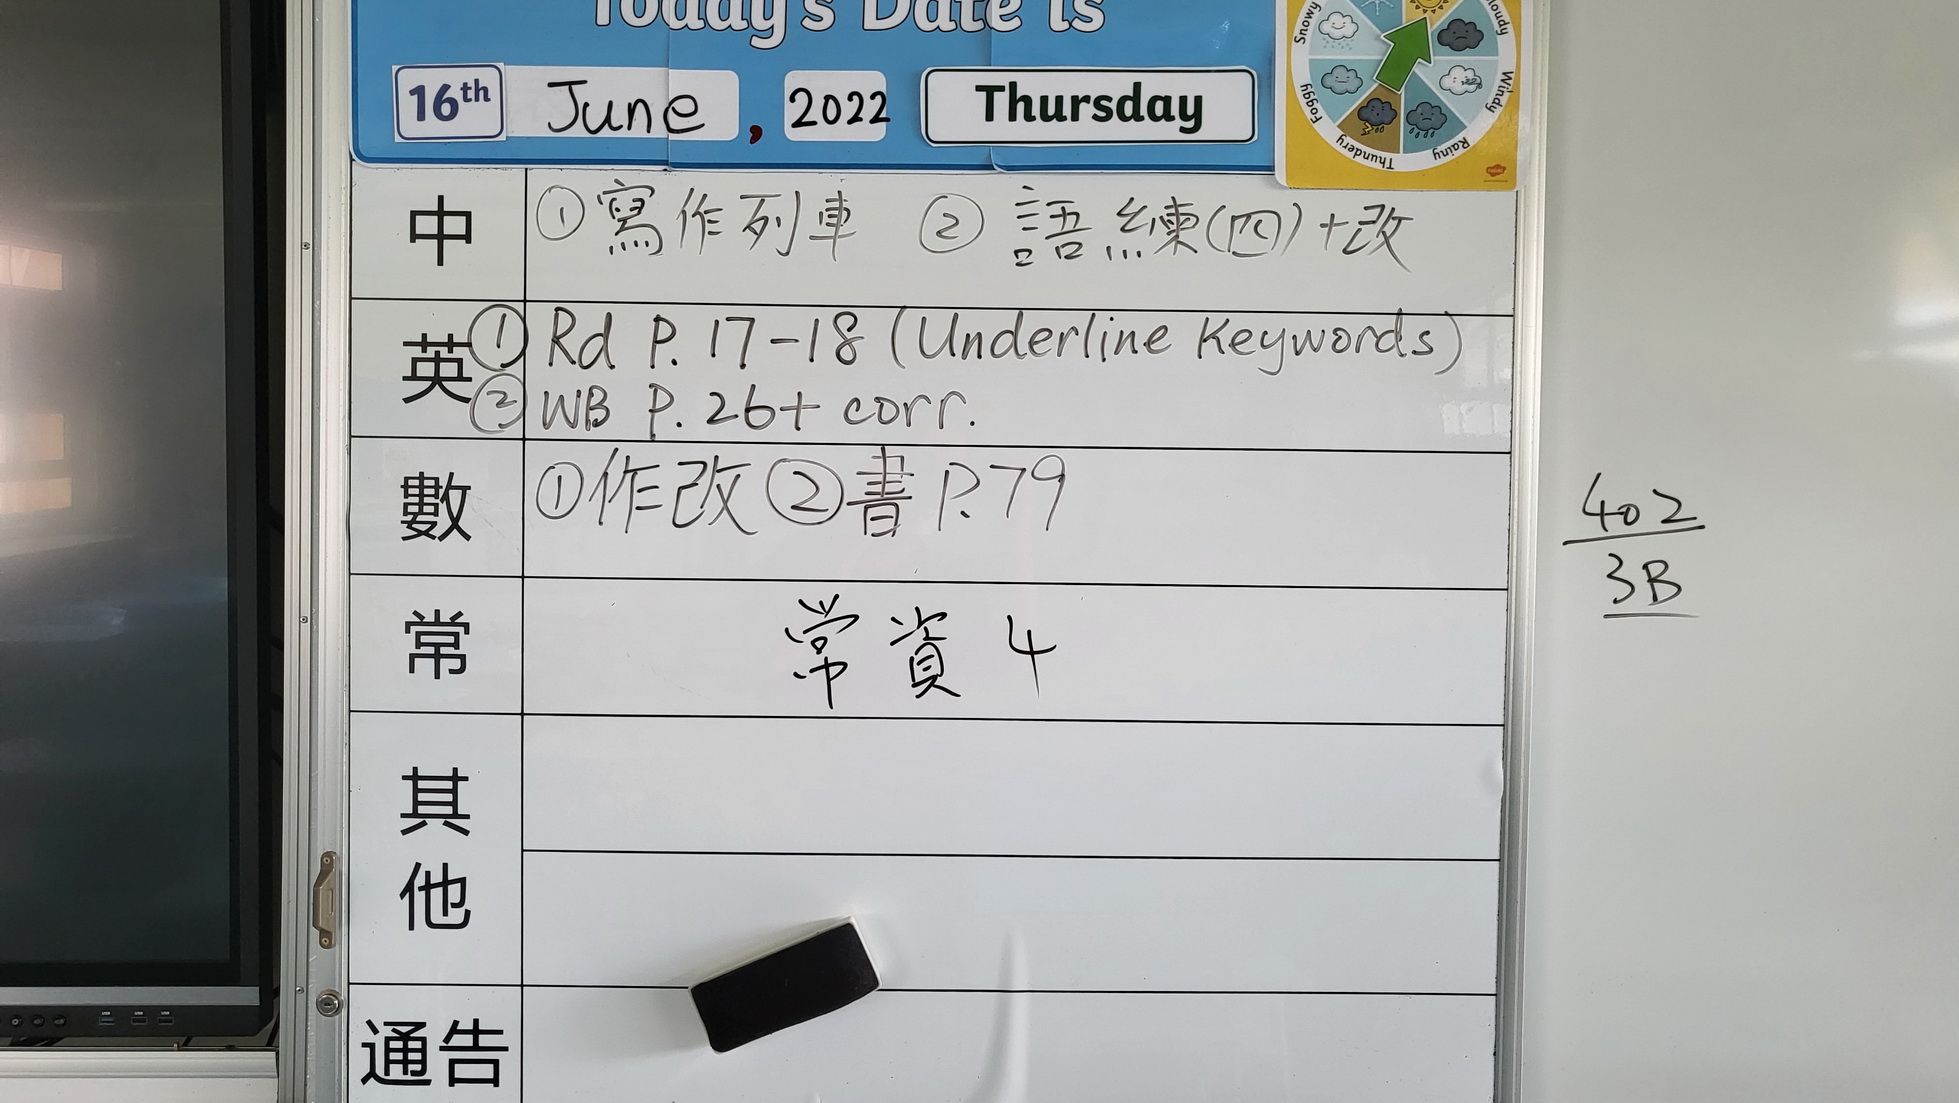 Today's Date is
16th June, 2022 Thursday
Snowy
Cloudy
Windy
Rainy
Thundery
Foggy
中 ①寫作列車 ②語練(四)+改
英 ① Rd P. 17-18 (Underline Keywords)
② WB P. 26+ corr.
數 ①作改②書P.79
常 常資4
402
3B
其
他
通告